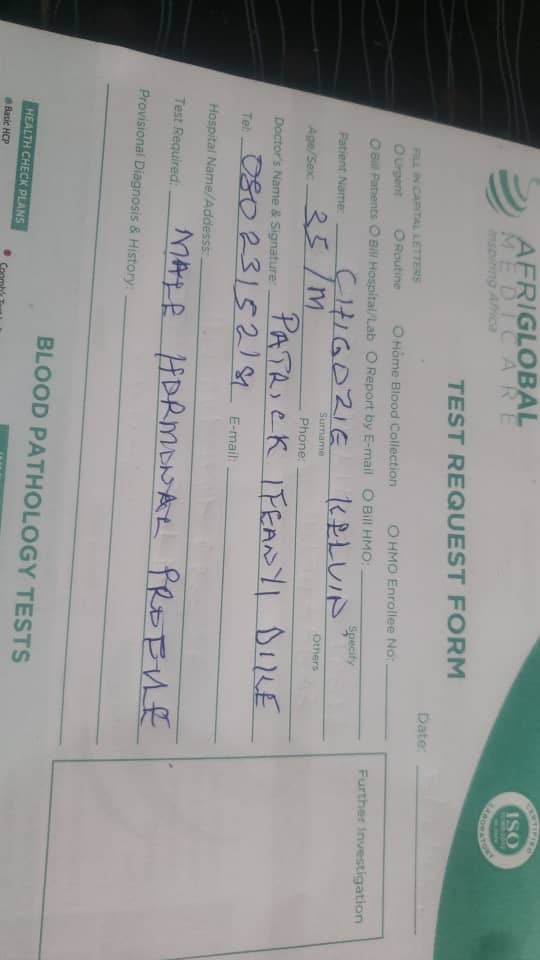 AFRIGLOBAL
MEDICARE
Inspiring Africa
CERTIFIED
ISO
LABORATORY
TEST REQUEST FORM
Date:
FILL IN CAPITAL LETTERS
O Urgent O Routine O Home Blood Collection O HMO Enrollee No:
O Bill Patients O Bill Hospital/Lab O Report by E-mail O Bill HMO:
Specify
Patient Name: CHIGOZIE KELVIN
Surname Others
Age/Sex: 35/M Phone:
Doctor's Name & Signature: PATRICK IFEANYI DIKE
Tel: E-mail:
Hospital Name/Addesss:
Test Required: MALE HORMONAL PROFILE
Provisional Diagnosis & History:
Further Investigation
BLOOD PATHOLOGY TESTS
HEALTH CHECK PLANS
Basic HCP